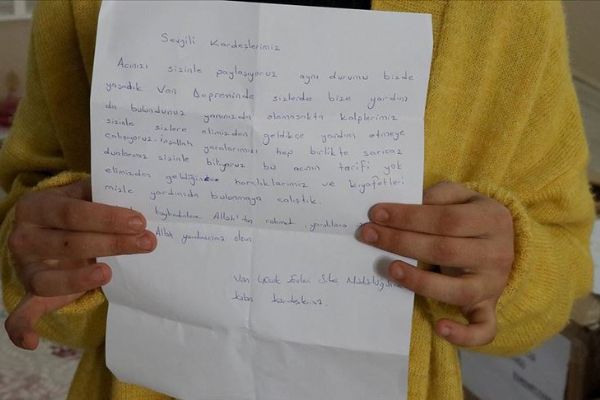 Sevgili Kardeşlerimiz
Acınızı sizinle paylaşıyoruz aynı durumu bizde
yaşadık Van Depreminde sizlerde bize yardım
da bulundunuz yanınızda olamasakta kalplerimiz
sizinle sizlere elimizden geldikçe yardım etmeye
çalışıyoruz. İnşallah yaralarımızı hep birlikte sarıcaz
dualarımız sizinle biliyoruz bu acının tarifi yok
elimizden geldiğince harçlıklarımız ve kıyafetleri
mizle yardımda bulunmaya çalıştık.
Allah'tan rahmet yaralılara
Allah yardımcınız olsun
Van Çocuk Evleri Site Müdürlüğü